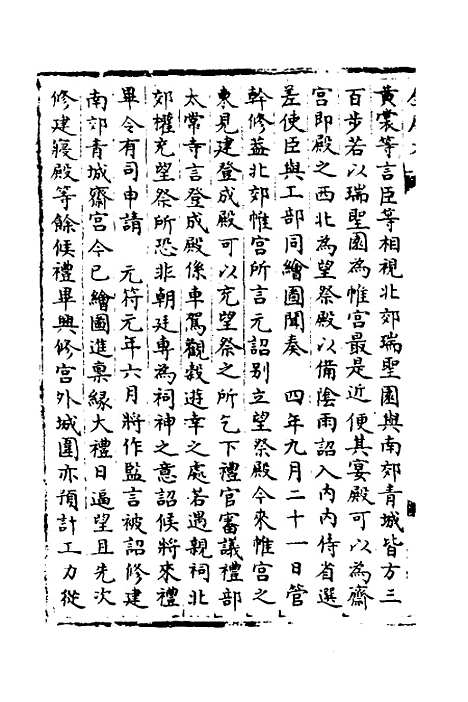 黄裳等言臣等相視北郊瑞聖園與南郊青城皆方三
百步若以瑞聖園為帷宮最是近便其宴殿可以為齋
宮即殿之西北為望祭殿以備陰雨詔入内内侍省選
差使臣與工部同繪圖聞奏　四年九月二十一日管
幹修蓋北郊帷宮所言元詔别立望祭殿今來帷宮之
東見建登成殿可以充望祭之所乞下禮官審議禮部
太常寺言登成殿係車駕觀穀遊幸之處若遇親祠北
郊權充望祭所恐非朝廷專為祠神之意詔候將來禮
畢令有司申請　元符元年六月將作監言被詔修建
南郊青城齋宮今已繪圖進稟緣大禮日逼望且先次
修建寢殿等餘候禮畢興修宮外城圍亦預計工力從